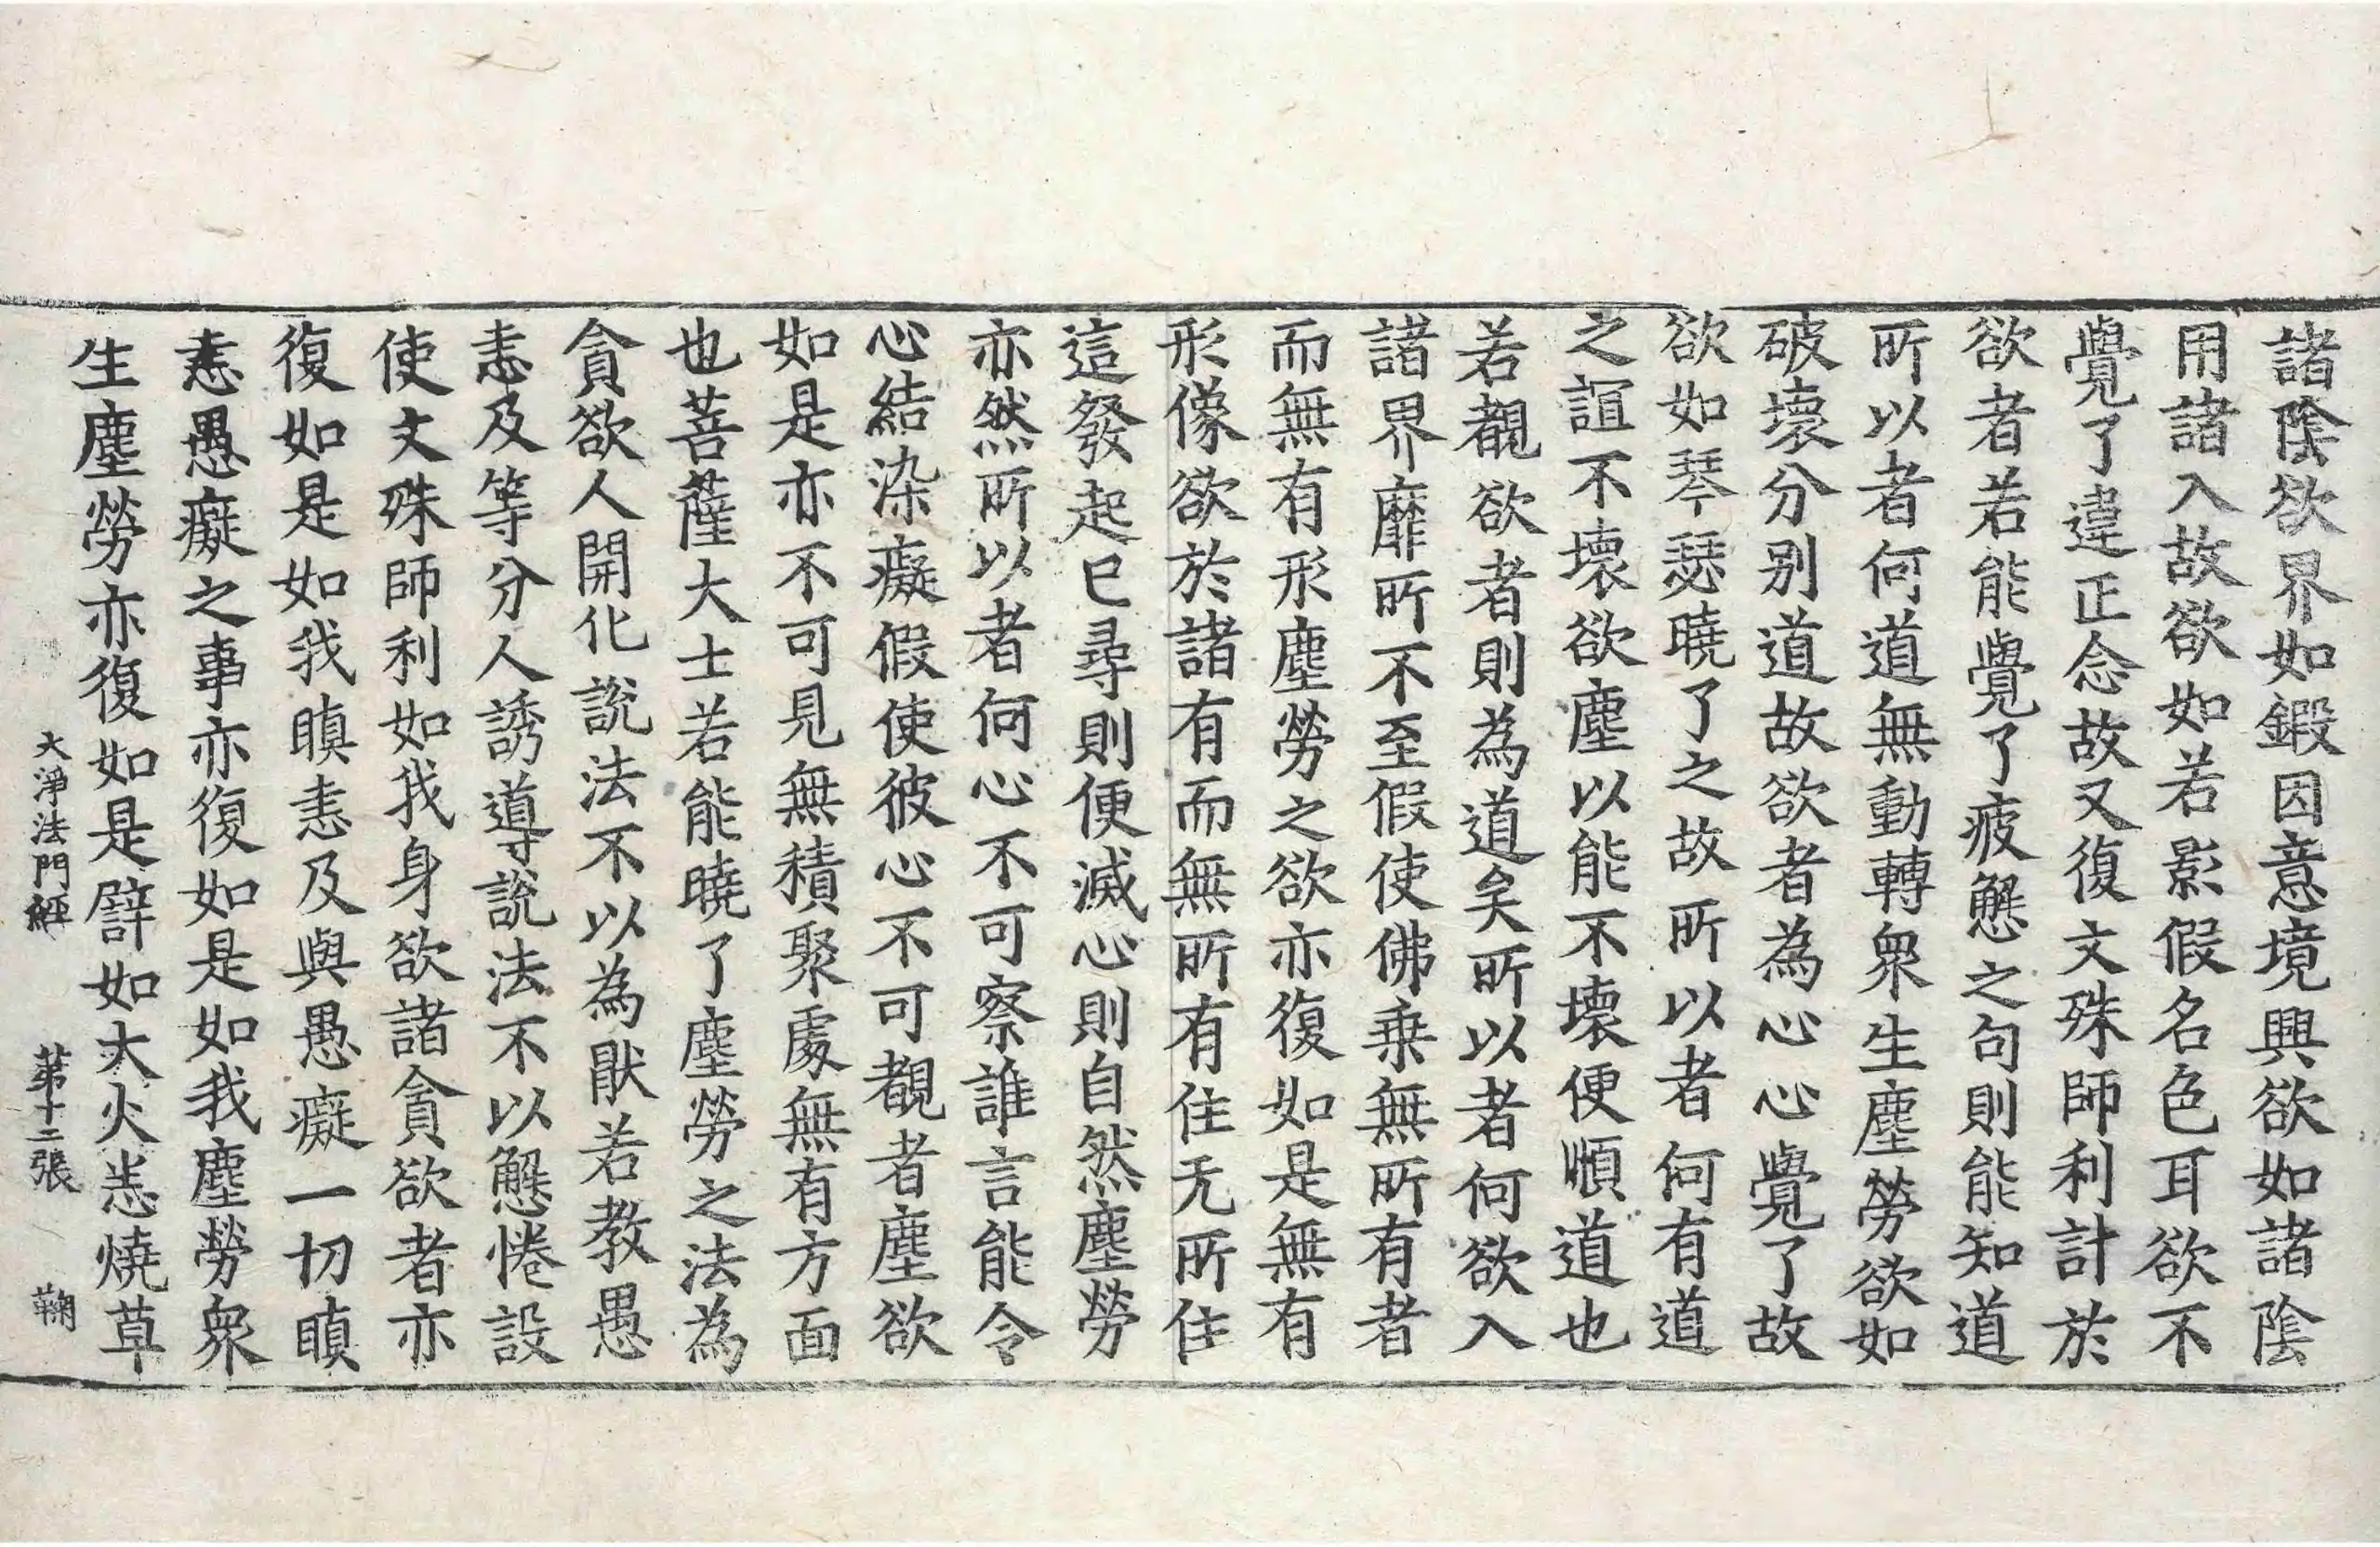 諸陰欲界如鍛因意境興欲如諸陰
用諸入故欲如若影假名色耳欲不
覺了違正念故又復文殊師利計於
欲者若能覺了疲懈之句則能知道
所以者何道無動轉衆生塵勞欲如
破壞分別道故欲者為心心覺了故
欲如琴瑟曉了之故所以者何有道
之誼不壞欲塵以能不壞便順道也
若觀欲者則為道矣所以者何欲入
諸界靡所不至假使佛乗無所有者
而無有形塵勞之欲亦復如是無有
形像欲於諸有而無所有住无所住
這發起已尋則便滅心則自然塵勞
亦然所以者何心不可察誰言能令
心結染癡假使彼心不可覩者塵欲
如是亦不可見無積聚處無有方面
也菩薩大士若能曉了塵勞之法為
貪欲人開化說法不以為猒若教愚
恚及等分人誘導說法不以懈惓設
使文殊師利如我身欲諸貪欲者亦
復如是如我瞋恚及與愚癡一切瞋
恚愚癡之事亦復如是如我塵勞衆
生塵勞亦復如是譬如大火恙燒草
大淨法門經 第十二張 鞠